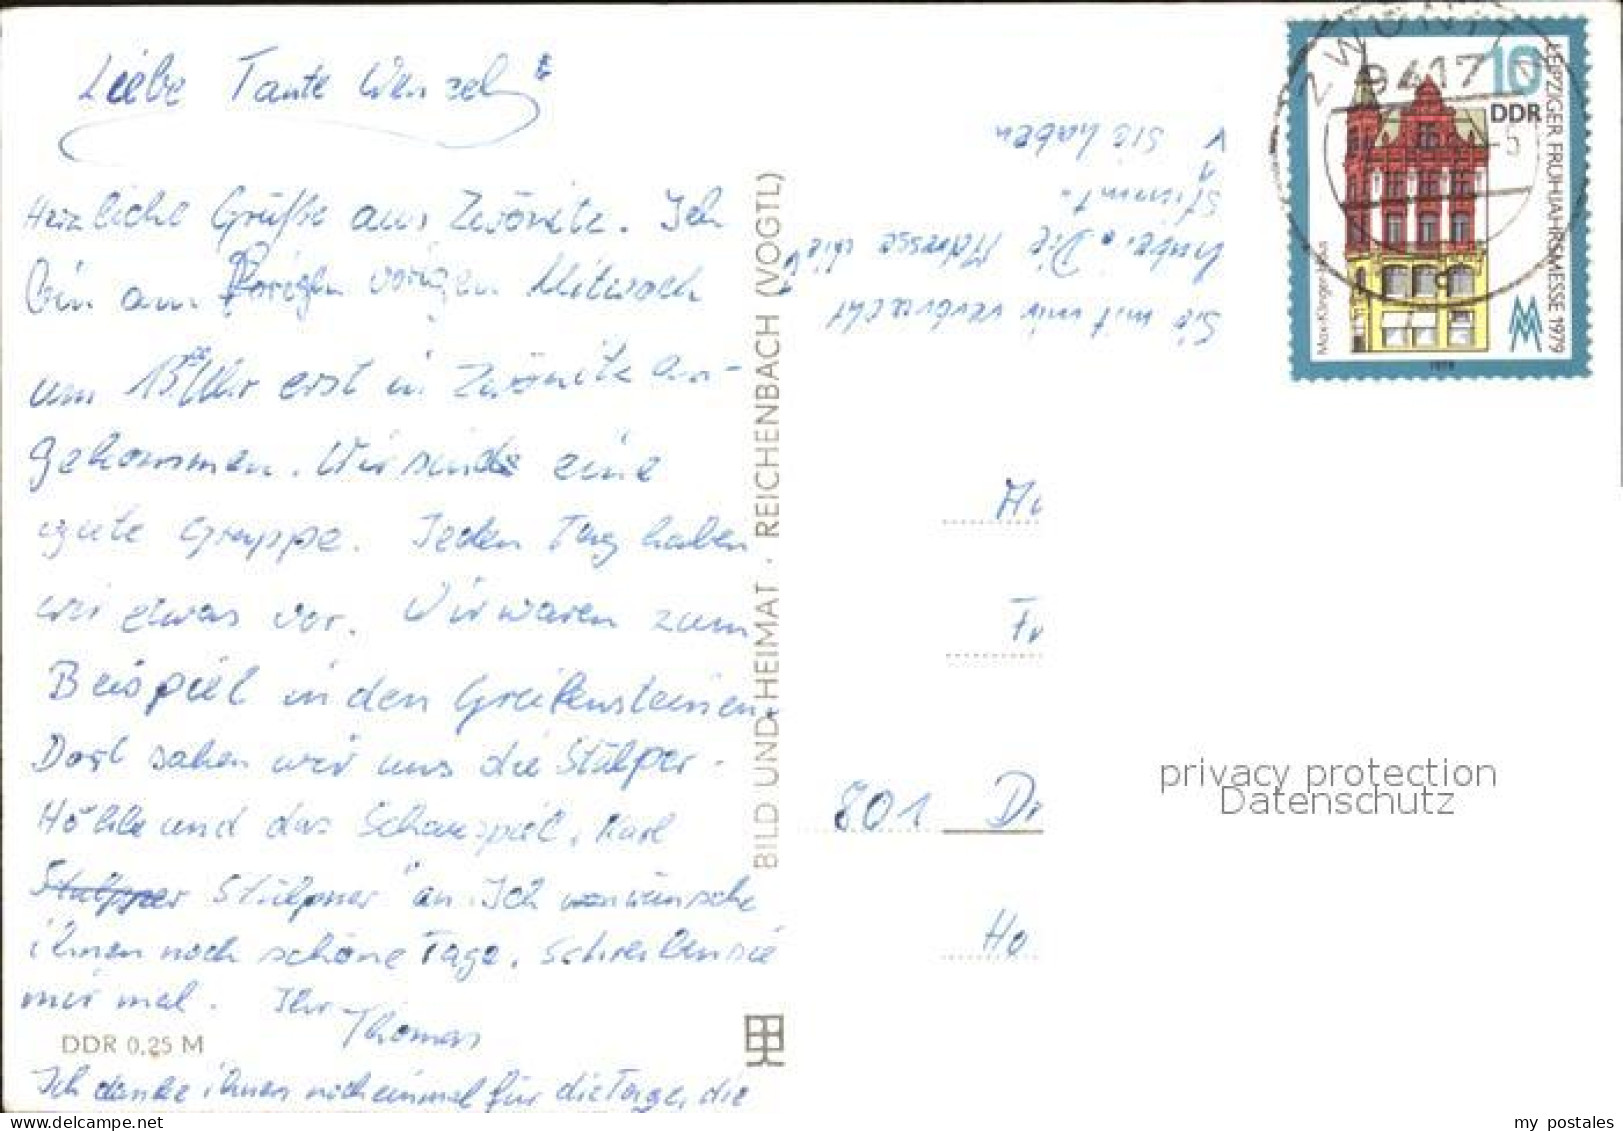 Liebe Tante Wenzel!
Herzliche Grüße aus Zwönitz. Ich
bin am vorigen Mitwoch
um 15⁰⁰ Uhr erst in Zwönitz an-
gekommen. Wir sind eine
gute Gruppe. Jeden Tag haben
wir etwas vor. Wir waren zum
Beispiel in den Greifensteinen.
Dort sahen wir uns die Stülper-
Höhle und das Schauspiel „Karl
Stülpner Stülpner" an. Ich wünsche
ihnen noch schöne Tage. Schreiben sie
mir mal. Ihr
Thomas
DDR 0,25 M
Ich danke ihnen noch einmal für die Tage, die
Sie mit mir verbracht
habe. Die Adresse die
stimmt.
Sie haben
BILD UND HEIMAT · REICHENBACH (VOGTL)
ZWÖNITZ
9417
10
DDR
LEIPZIGER FRÜHJAHRSMESSE 1979
Max-Klinger-Haus
MM
1979
Fr
801 Dr
Ho
privacy protection
Datenschutz
my postales